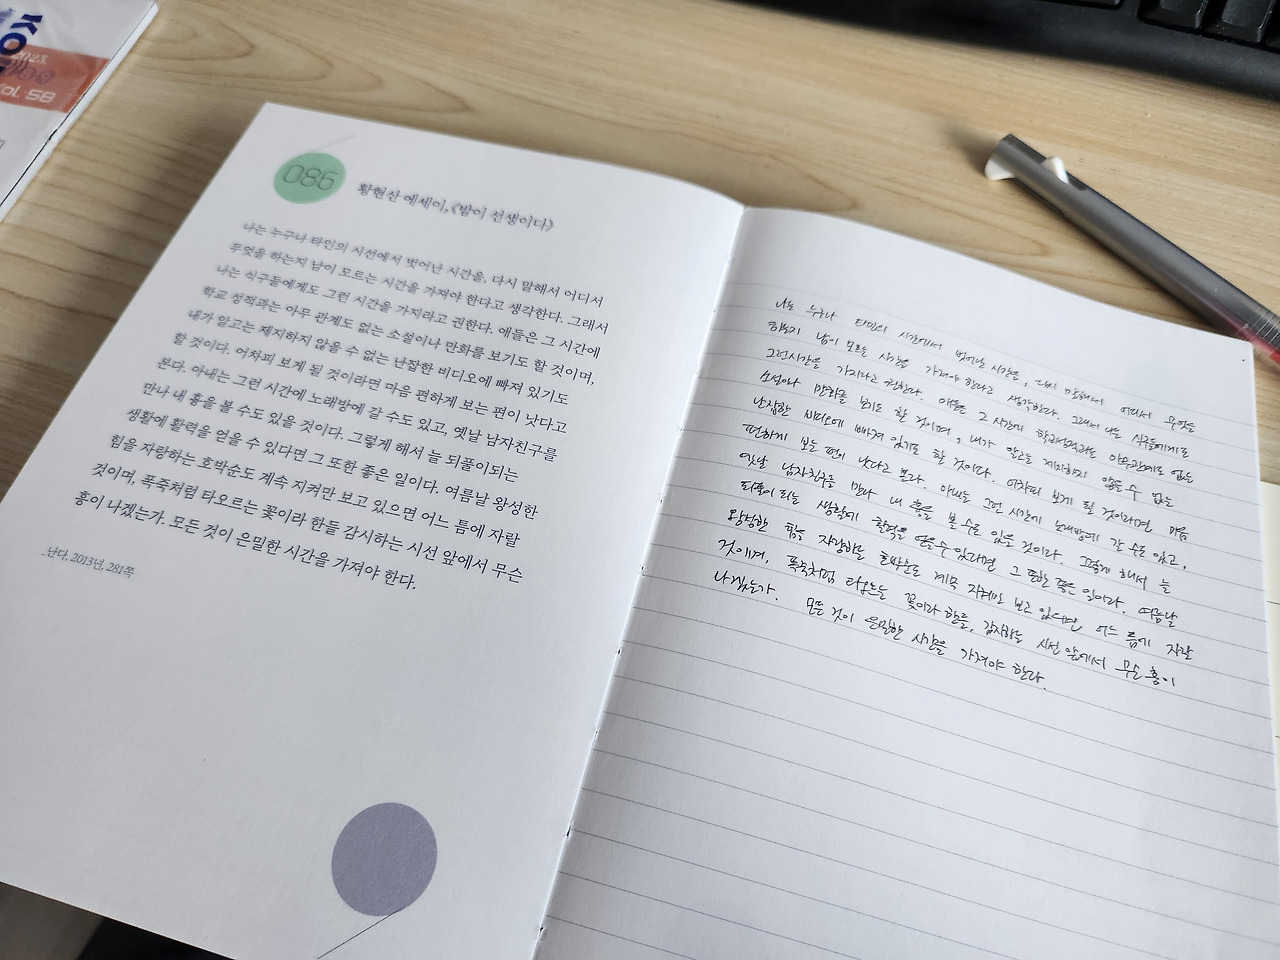 KO
2023.
Vol. 58
086
황현산 에세이, 《밤이 선생이다》
나는 누구나 타인의 시선에서 벗어난 시간을, 다시 말해서 어디서
무엇을 하는지 남이 모르는 시간을 가져야 한다고 생각한다. 그래서
나는 식구들에게도 그런 시간을 가지라고 권한다. 애들은 그 시간에
학교 성적과는 아무 관계도 없는 소설이나 만화를 보기도 할 것이며,
내가 알고는 제지하지 않을 수 없는 난잡한 비디오에 빠져 있기도
할 것이다. 어차피 보게 될 것이라면 마음 편하게 보는 편이 낫다고
본다. 아내는 그런 시간에 노래방에 갈 수도 있고, 옛날 남자친구를
만나 내 흉을 볼 수도 있을 것이다. 그렇게 해서 늘 되풀이되는
생활에 활력을 얻을 수 있다면 그 또한 좋은 일이다. 여름날 왕성한
힘을 자랑하는 호박순도 계속 지켜만 보고 있으면 어느 틈에 자랄
것이며, 폭죽처럼 타오르는 꽃이라 한들 감시하는 시선 앞에서 무슨
흥이 나겠는가. 모든 것이 은밀한 시간을 가져야 한다.
_난다, 2013년, 281쪽
나는 누구나 타인의 시선에서 벗어난 시간을, 다시 말해서 어디서 무엇을
하는지 남이 모르는 시간을 가져야 한다고 생각한다. 그래서 나는 식구들에게도
그런시간을 가지라고 권한다. 애들은 그 시간에 학과성적과는 아무관계도 없는
소설이나 만화를 보기도 할 것이며, 내가 알고는 제지하지 않을 수 없는
난잡한 비디오에 빠져 있기도 할 것이다. 어차피 보게 될 것이라면 마음
편하게 보는 편이 낫다고 본다. 아내는 그런 시간에 노래방에 갈 수도 있고,
옛날 남자친구를 만나 내 흉을 볼 수도 있을 것이다. 그렇게 해서 늘
되풀이 되는 생활에 활력을 얻을 수 있다면 그 또한 좋은 일이다. 여름날
왕성한 힘을 자랑하는 호박순도 계속 지켜만 보고 있으면 어느 틈에 자랄
것이며, 폭죽처럼 타오르는 꽃이라 한들, 감시하는 시선 앞에서 무슨 흥이
나겠는가. 모든 것이 은밀한 시간을 가져야 한다.